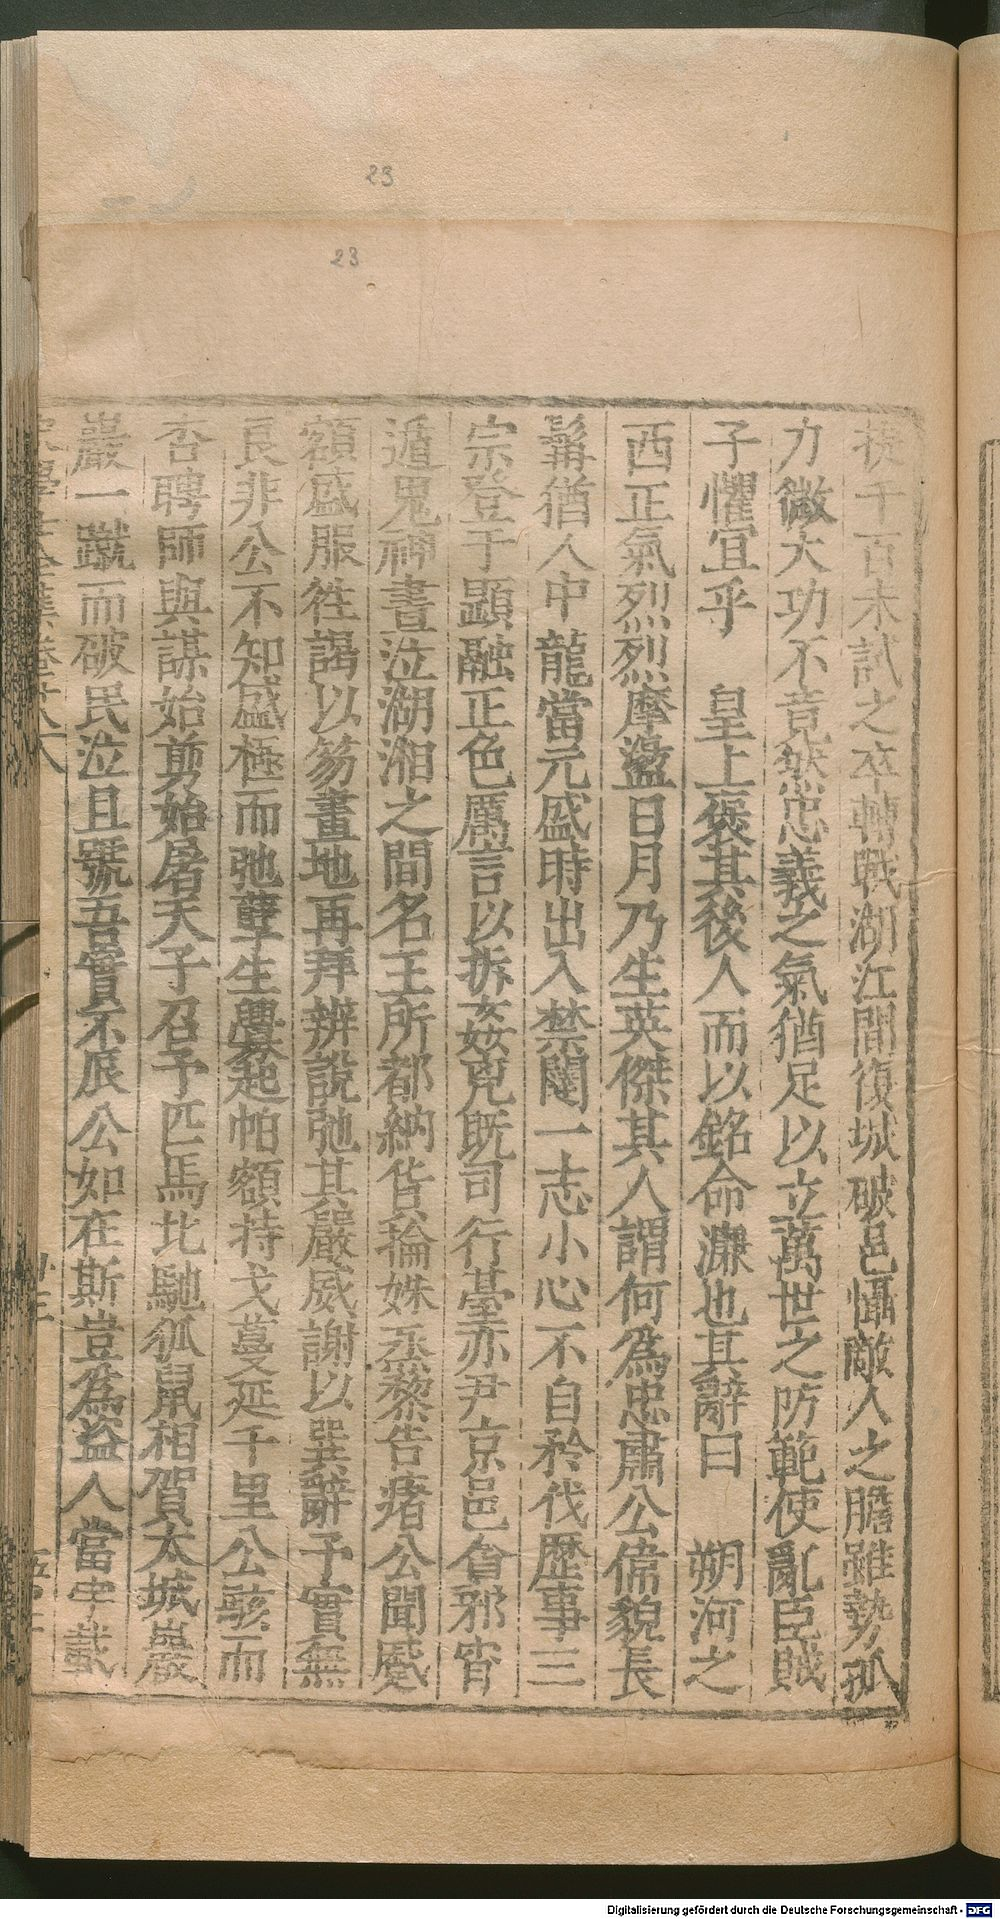 23
23
援千百未試之卒轉戰湖江間復城破邑懾敵人之膽雖勢孤
力微大功不竟然忠義之氣猶足以立萬世之防範使亂臣賊
子懼宜乎 皇上褒其後人而以銘命濂也其辭曰 朔河之
西正氣烈烈摩盪日月乃生英傑其人謂何為忠肅公偉貌長
髯猶人中龍當元盛時出入禁闥一志小心不自矜伐歷事三
宗登于顯融正色厲言以折姦兇既司行臺亦尹京邑省邪宵
遁鬼神晝泣湖湘之間名王所都納貨掄姝烝黎告瘏公聞蹙
額盛服徃謁以笏畫地再拜辨說弛其嚴威謝以巽辭予實無
良非公不知盛極而弛孽生舋起帕額持戈蔓延千里公駭而
杏聘師與謀始剪始屠天子召予匹馬北馳狐鼠相賀太城巖
巖一蹴而破民泣且號吾實不辰公如在斯豈為盜人當宁載
卷廿八
Digitalisierung gefördert durch die Deutsche Forschungsgemeinschaft - DFG